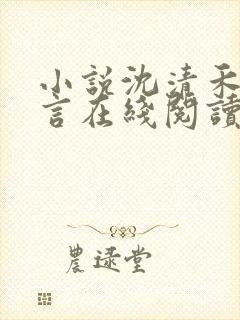 小説沈清禾
言在綫閱讀
農逯堂